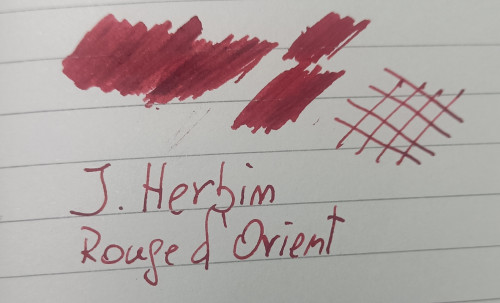 J. Herbin
Rouge d'Orient